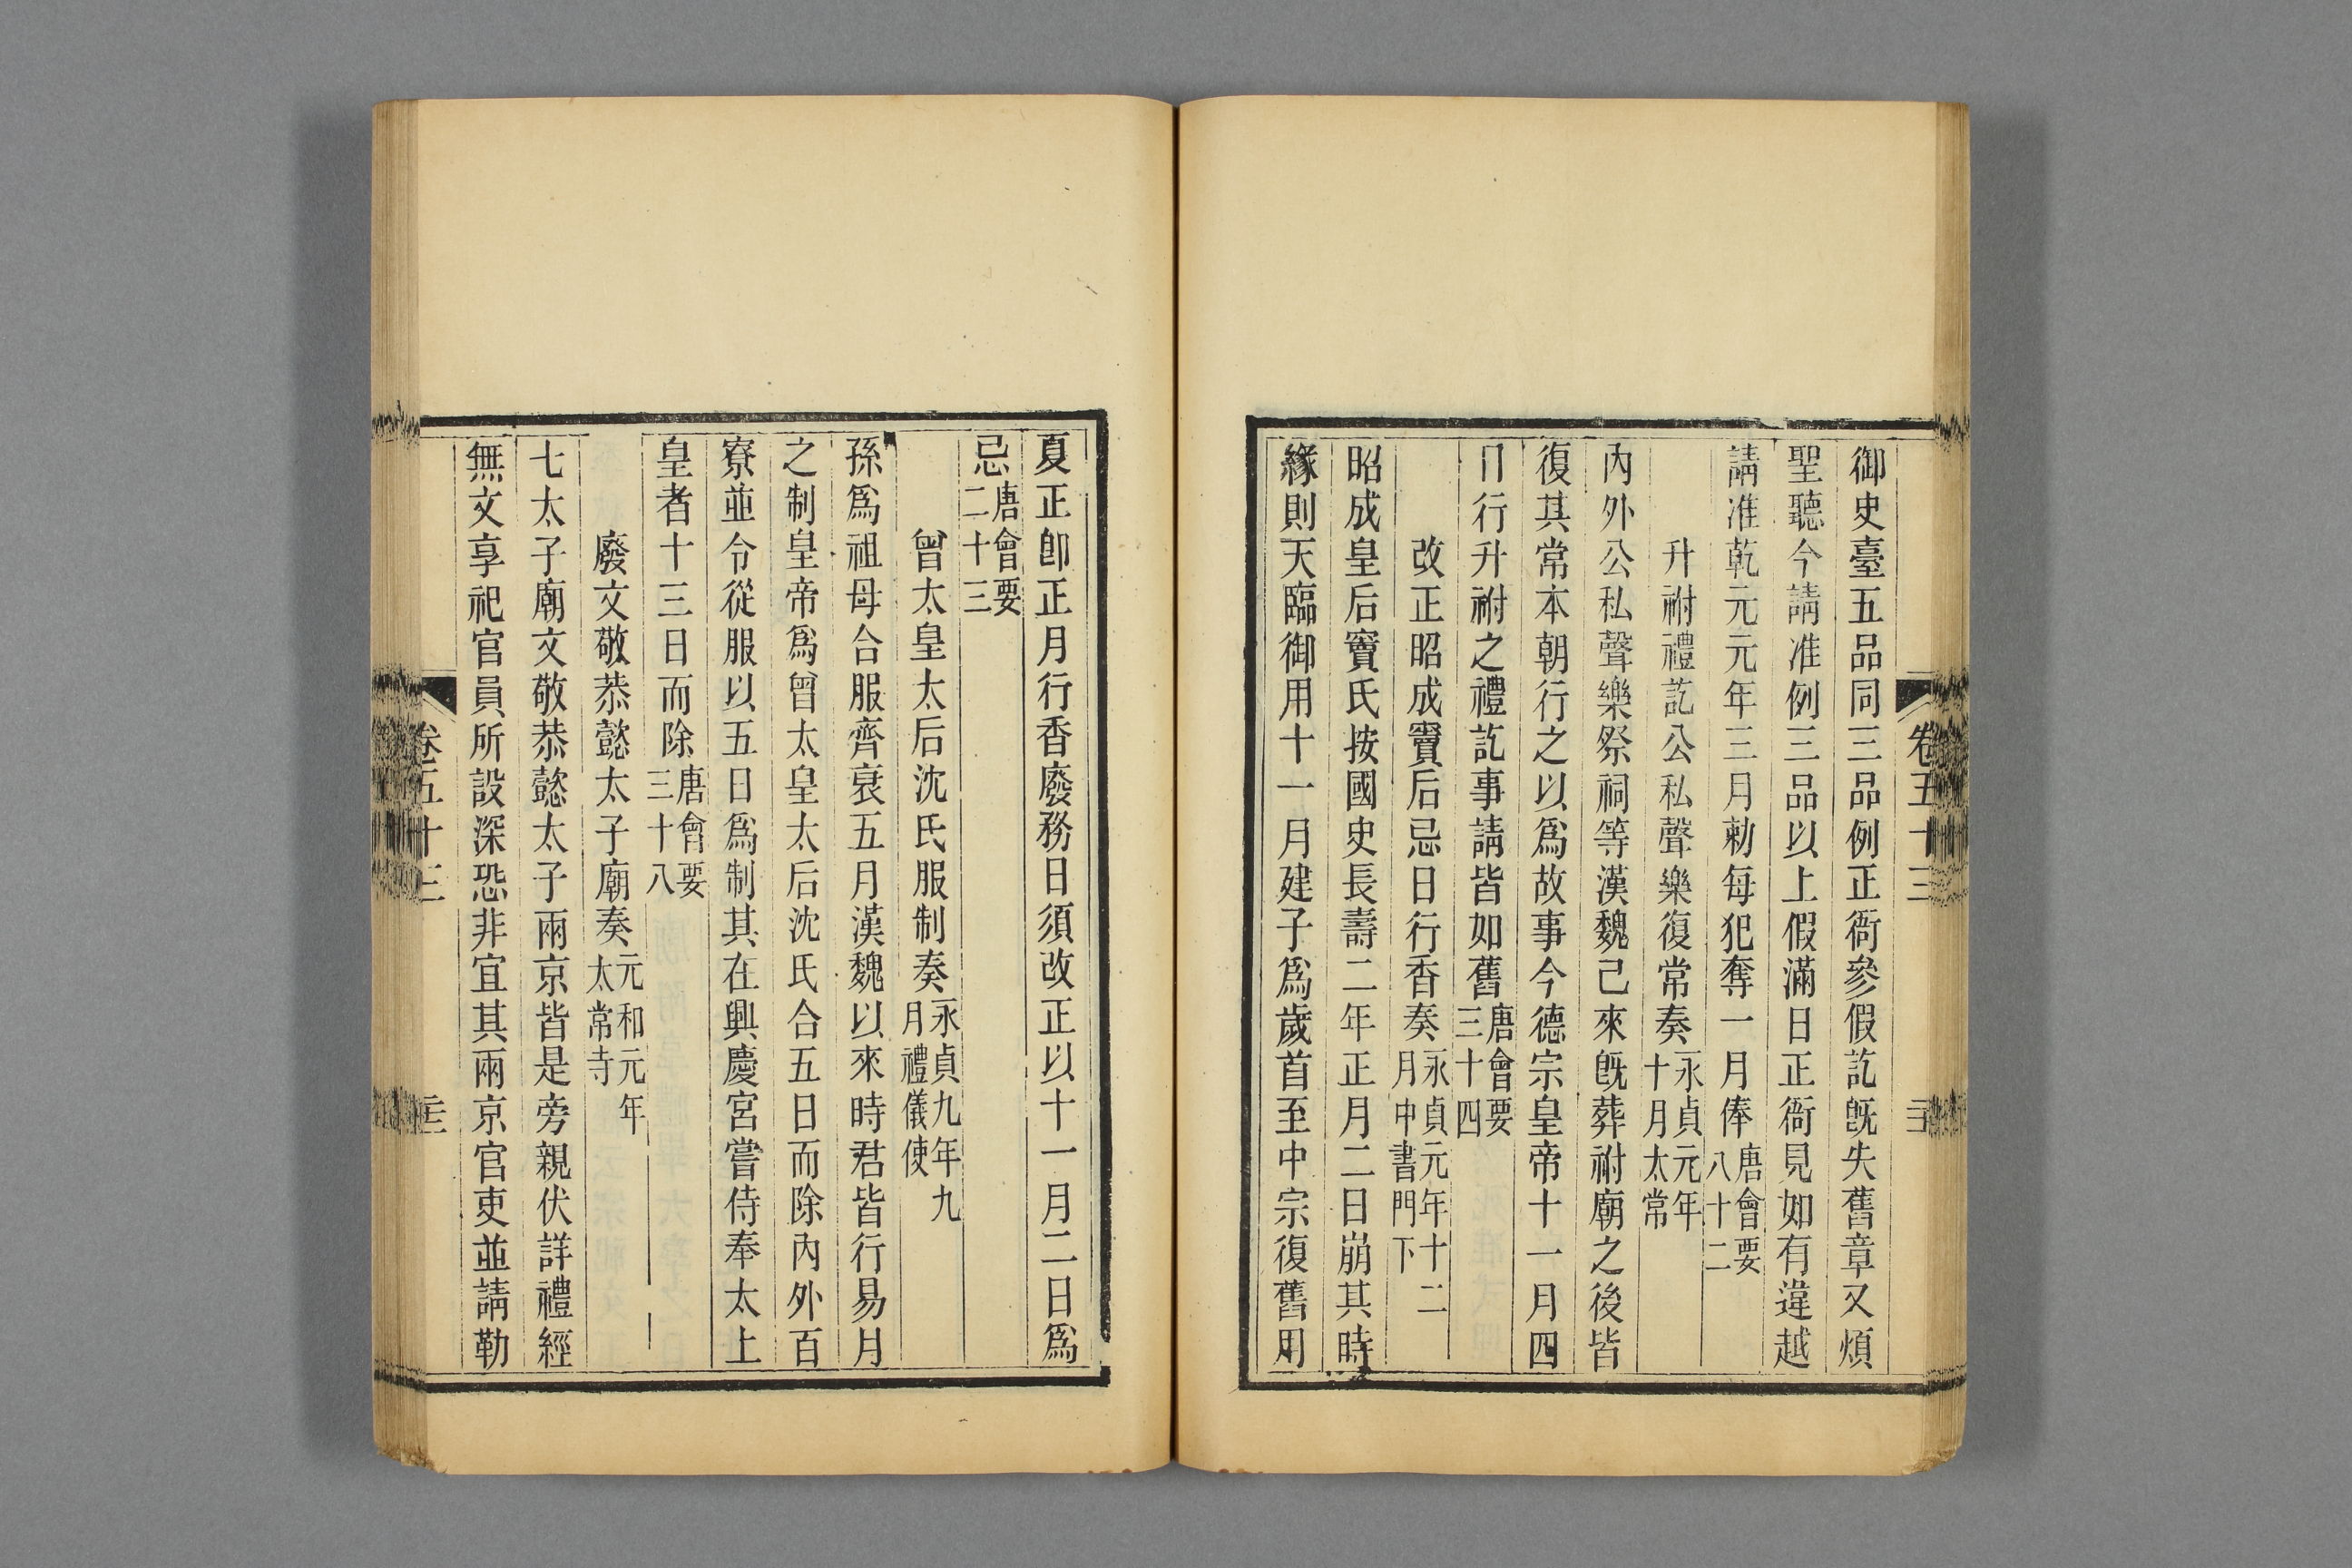 御史臺五品同三品例正衙參假訖旣失舊章又煩
聖聽今請准例三品以上假滿日正衙見如有違越
請准乾元元年三月勅每犯奪一月俸唐會要八十二
升祔禮訖公私聲樂復常奏永貞元年十月太常
內外公私聲樂祭祠等漢魏已來旣葬祔廟之後皆
復其常本朝行之以爲故事今德宗皇帝十一月四
日行升祔之禮訖事請皆如舊唐會要三十四
改正昭成竇后忌日行香奏永貞元年十二月中書門下
昭成皇后竇氏按國史長壽二年正月二日崩其時
緣則天臨御用十一月建子爲歲首至中宗復舊用
卷五十三
夏正卽正月行香廢務日須改正以十一月二日爲
忌唐會要二十三
曾太皇太后沈氏服制奏永貞九年九月禮儀使
孫爲祖母合服齊衰五月漢魏以來時君皆行易月
之制皇帝爲曾太皇太后沈氏合五日而除內外百
寮並令從服以五日爲制其在興慶宮嘗侍奉太上
皇者十三日而除唐會要三十八
廢文敬恭懿太子廟奏元和元年太常寺
七太子廟文敬恭懿太子兩京皆是旁親伏詳禮經
無文享祀官員所設深恐非宜其兩京官吏並請勒
卷五十三